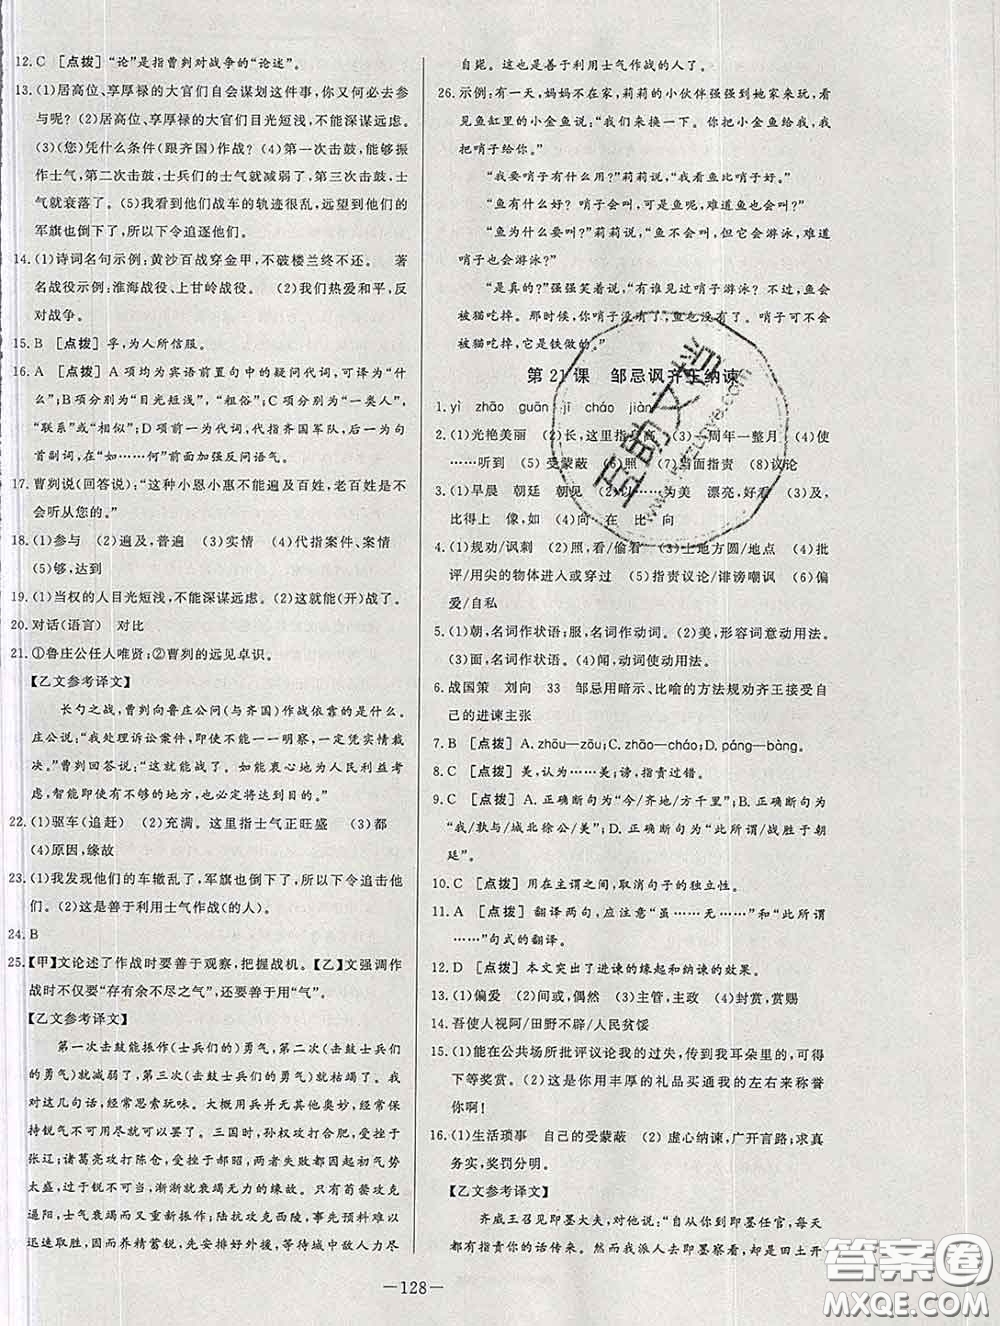 12. C [点拨]“论”是指曹刿对战争的“论述”。
13. (1)居高位、享厚禄的大官们自会谋划这件事,你又何必去参
与呢? (2)居高位、享厚禄的大官们目光短浅,不能深谋远虑。
(3)(您)凭什么条件(跟齐国)作战? (4)第一次击鼓,能够振
作士气,第二次击鼓,士兵们的士气就减弱了,第三次击鼓,士
气就衰落了。(5)我看到他们战车的轨迹很乱,远望到他们的
军旗也倒下了,所以下令追逐他们。
14. (1)诗词名句示例:黄沙百战穿金甲,不破楼兰终不还。 著
名战役示例:淮海战役、上甘岭战役。 (2)我们热爱和平,反
对战争。
15. B [点拨]孚,为人所信服。
16. A [点拨]A项均为宾语前置句中的疑问代词,可译为“什
么”;B项分别为“目光短浅”,“粗俗”;C项分别为“一类人”,
“联系”或“相似”;D项前一为代词,代指齐国军队,后一为句
首副词,在“如……何”前面加强反问语气。
17. 曹刿说(回答说):“这种小恩小惠不能遍及百姓,老百姓是不
会听从您的。”
18. (1)参与 (2)遍及,普遍 (3)实情 (4)代指案件、案情
(5)够,达到
19. (1)当权的人目光短浅,不能深谋远虑。 (2)这就能(开)战了。
20. 对话(语言) 对比
21. ①鲁庄公任人唯贤;②曹刿的远见卓识。
【乙文参考译文】
长勺之战,曹刿向鲁庄公问(与齐国)作战依靠的是什么。
庄公说:“我处理诉讼案件,即使不能一一明察,一定凭实情裁
决。”曹刿回答说:“这就能战了。如能衷心地为人民利益考
虑,智慧即使有不够的地方,也必定会达到的。”
22. (1)驱车(追赶) (2)充满。这里指士气正旺盛 (3)都
(4)原因,缘故
23. (1)我发现他们的车辙乱了,军旗也倒下了,所以下令追击他
们。(2)这是善于利用士气作战(的人)。
24. B
25. 【甲】文论述了作战时要善于观察,把握战机。【乙】文强调作
战时不仅要“存有余不尽之气”,还要善于用“气”。
【乙文参考译文】
第一次击鼓能振作(士兵们的)勇气,第二次(击鼓士兵们
的勇气)就减弱了,第三次(击鼓士兵们的勇气)就枯竭了。我
对这几句话,经常思索玩味。大概用兵并其他奥妙,经常保
持锐气不用尽就可以罢了。三国时,孙权攻打合肥,受挫于
张辽;诸葛亮攻打陈仓,受挫于郝昭,两者失败都因起初气势
太盛,过于锐不可当,渐渐就衰竭无力的缘故。只有荀罃攻克
逼阳,士气衰竭却重新振作;陆抗攻克西陵,事先预料难以
迅速取胜,因而养精蓄锐,先安排好外援,等待城中敌人力尽
自毙。这也是善于利用士气作战的人了。
26. 示例:有一天,妈妈不在家,莉莉的小伙伴强强到她家来玩,看
见鱼缸里的小金鱼说:“我们来换一下。你把小金鱼给我,我
把哨子给你。”
“我要哨子有什么用?”莉莉说,“我看鱼比哨子好。”
“鱼有什么好? 哨子会叫,可是鱼不会叫,难道鱼也会叫?”
“鱼为什么要叫?”莉莉说,“鱼不会叫,但它会游泳,难道
哨子也会游泳?”
“是真的?”强强笑着说,“有谁见过哨子游泳? 不过,鱼会
被猫吃掉。那时候,你哨子没有了,鱼也没有了。哨子可不会
被猫吃掉,它是铁做的。”
第21课 邹忌讽齐王纳谏
1. yì zhāo guān jī cháo jiàn
2. (1)光艳美丽 (2)长,这里指身高 (3)一周年一整月 (4)使
……听到 (5)受蒙蔽 (6)照 (7)当面指责 (8)议论
3. (1)早晨 朝廷 朝见 (2)以……为美 漂亮,好看 (3)及,
比得上 像,如 (4)向 在 比 向
4. (1)规劝/讽刺 (2)照,看/偷看 (3)土地方圆/地点 (4)批
评/用尖的物体进入或穿过 (5)指责议论/诽谤嘲讽 (6)偏
爱/自私
5. (1)朝,名词作状语;服,名词作动词。(2)美,形容词意动用法。
(3)面,名词作状语。(4)闻,动词使动用法。
6. 战国策 刘向 33 邹忌用暗示、比喻的方法规劝齐王接受自
己的进谏主张
7. B [点拨]A. zhōu—zōu;C. zhāo—cháo;D. páng—bàng。
8. C [点拨]美,认为……美;谤,指责过错。
9. C [点拨]A. 正确断句为“今/齐地/方千里”;B. 正确断句为
“我/孰与/城北徐公/美”;D. 正确断句为“此所谓/战胜于朝
廷”。
10. C [点拨]用在主谓之间,取消句子的独立性。
11. A [点拨]翻译两句,应注意“虽……无……”和“此所谓
……”句式的翻译。
12. D [点拨]本文突出了进谏的缘起和纳谏的效果。
13. (1)偏爱 (2)间或,偶然 (3)主管,主政 (4)封赏,赏赐
14. 吾使人视阿/田野不辟/人民贫馁
15. (1)能在公共场所批评议论我的过失,传到我耳朵里的,可得
下等奖赏。(2)这是你用丰厚的礼品买通我的左右来称誉
你啊!
16. (1)生活琐事 自己的受蒙蔽 (2) 虚心纳谏,广开言路;求真
务实,奖罚分明。
【乙文参考译文】
齐威王召见即墨大夫,对他说:“自从你到即墨任官,每天
都有指责你的话传来。然而我派人去即墨察看,却是田土开
—128—
互助文档
答案圈
MXQE.COM